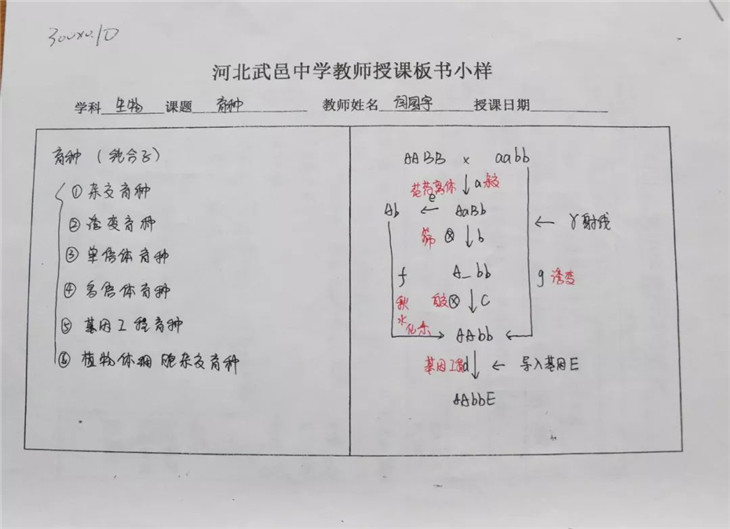 300X0.10
河北武邑中学教师授课板书小样
学科 生物 课题 育种 教师姓名 闫国宇 授课日期
育种 (纯合子)
① 杂交育种
② 诱变育种
③ 单倍体育种
④ 多倍体育种
⑤ 基因工程育种
⑥ 植物体细胞杂交育种
AABB x aabb
花药离体 ↓ a 杂交
Ab ← e AaBb
← γ射线
筛 ⊗ ↓ b
f A_bb g 诱变
秋水仙素 ⊗ ↓ C
AAbb
基因工程 ↓ d ← 导入基因E
AAbbE